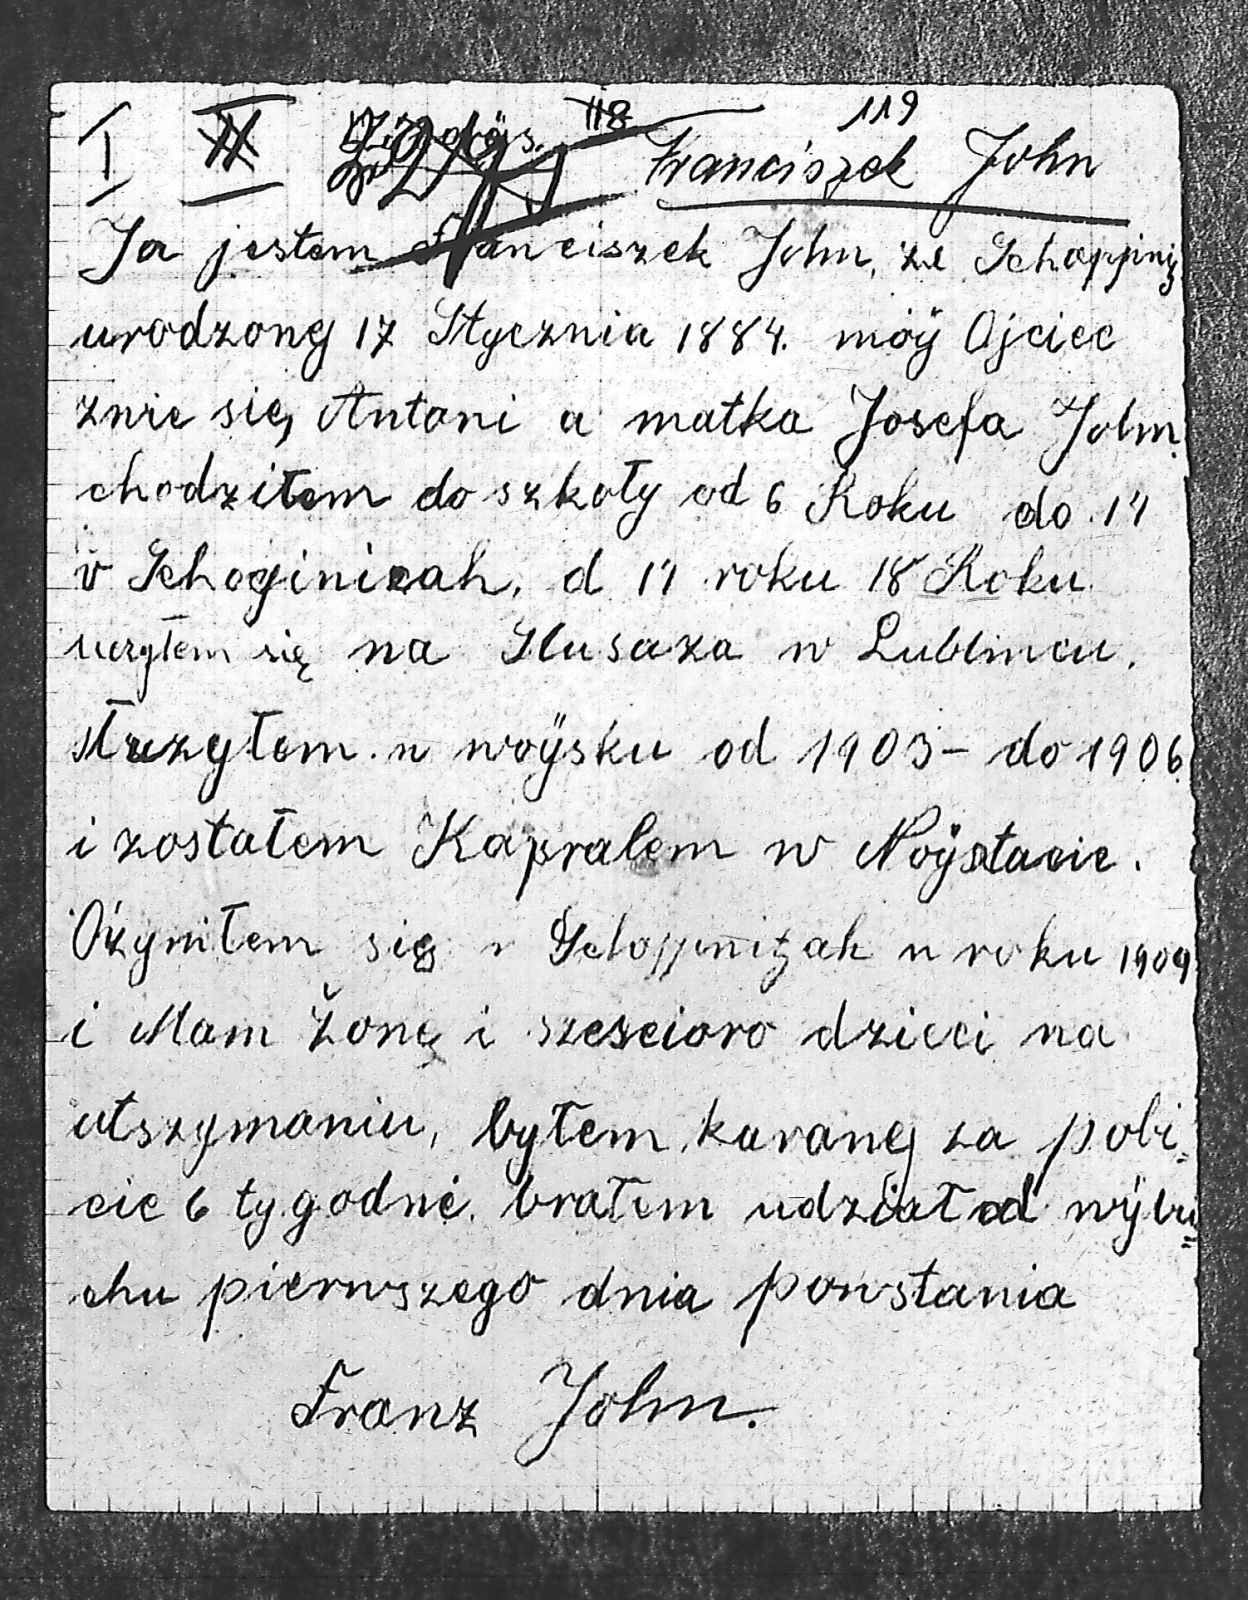 I II 118 119
Franciszek John
Ja jestem Franciszek John, ze Schoppinitz
urodzony 17 Stycznia 1884. móy Ojciec
znie się Antoni a matka Josefa John
chodziłem do szkoły od 6 Roku do 14
v Schoginicah, d 14 roku 18 Roku
uczyłem się na Slusaza w Lublincu.
słuzyłem w woÿsku od 1903 - do 1906
i zostałem Kapralem w Noÿstacie.
Ożyniłem się w Schoppinitzah w roku 1909
i Mam Żonę i szescioro dzieci na
utszymaniu, byłem karany za pobi=
cie 6 tygodne. brałem udział od wÿbu=
chu pierwszego dnia powstania
Franz John.